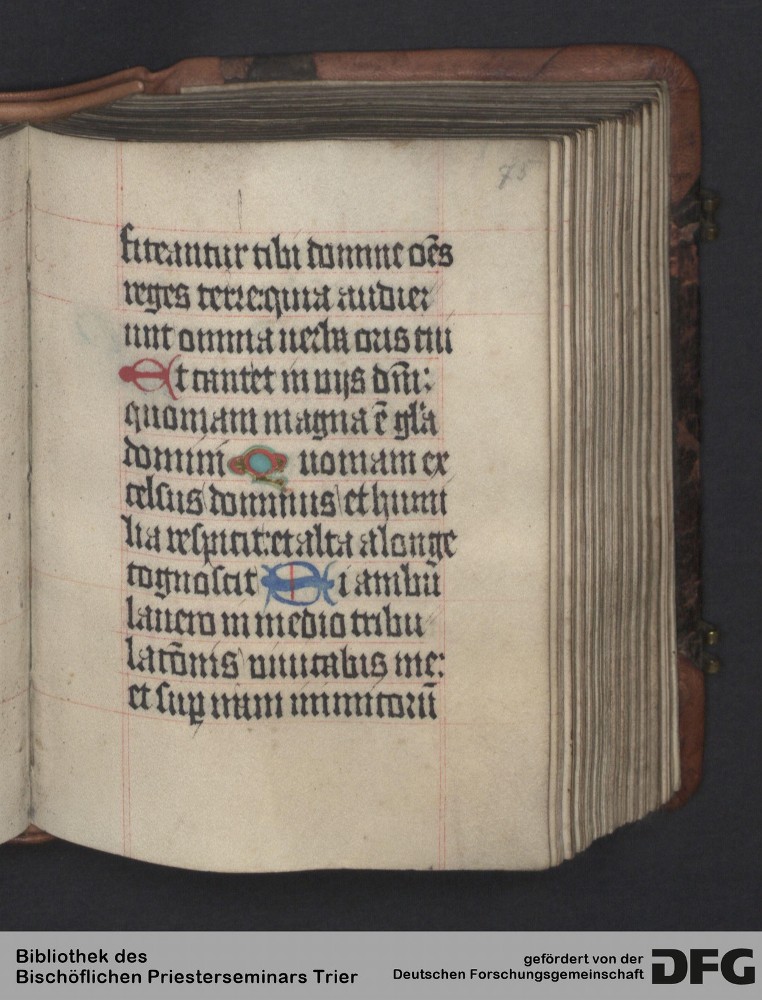 75
fiteantur tibi domine oēs
reges terre: quia audier
unt omnia uerba oris tui
Et cantet in uijs dn̄i:
quoniam magna ē gl̄a
domini Quoniam ex
celsus dominus et humi
lia respicit: et alta a longe
cognoscit Si ambu̅
lauero in medio tribu
latōnis uiuicabis me:
et suꝑ iram inimicorū
Bibliothek des
Bischöflichen Priesterseminars Trier
gefördert von der
Deutschen Forschungsgemeinschaft
DFG